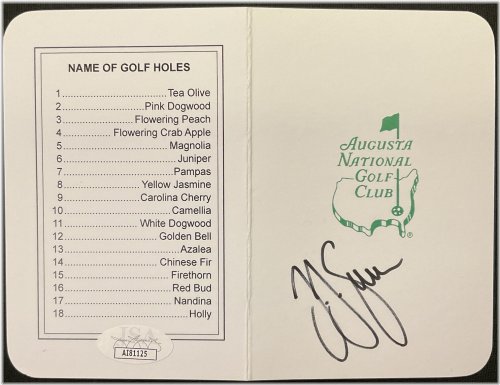 NAME OF GOLF HOLES
1 Tea Olive
2 Pink Dogwood
3 Flowering Peach
4 Flowering Crab Apple
5 Magnolia
6 Juniper
7 Pampas
8 Yellow Jasmine
9 Carolina Cherry
10 Camellia
11 White Dogwood
12 Golden Bell
13 Azalea
14 Chinese Fir
15 Firethorn
16 Red Bud
17 Nandina
18 Holly
JSA
AI81125
AUGUSTA
NATIONAL
GOLF
CLUB
®